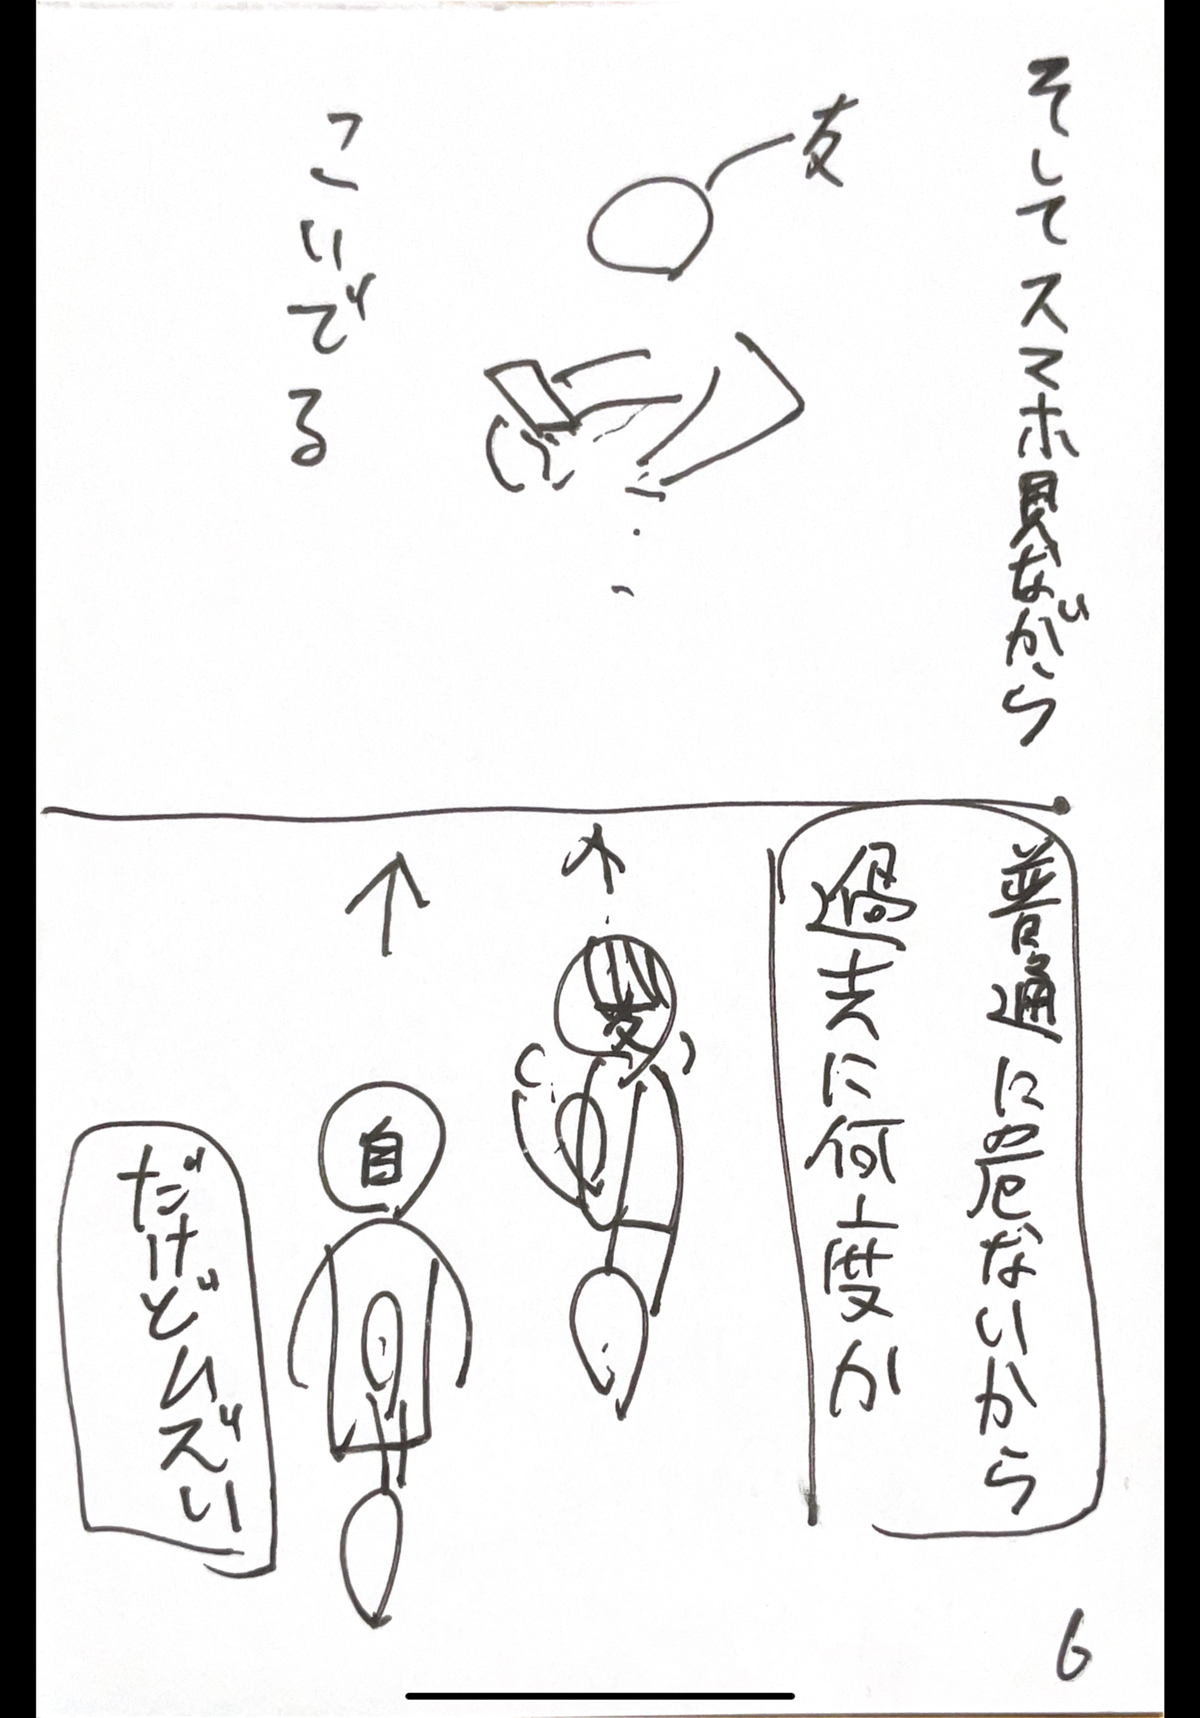 そしてスマホ見ながら
友
こいでる
普通に危ないから
過去に何度か
友
自
だけどムズい
6